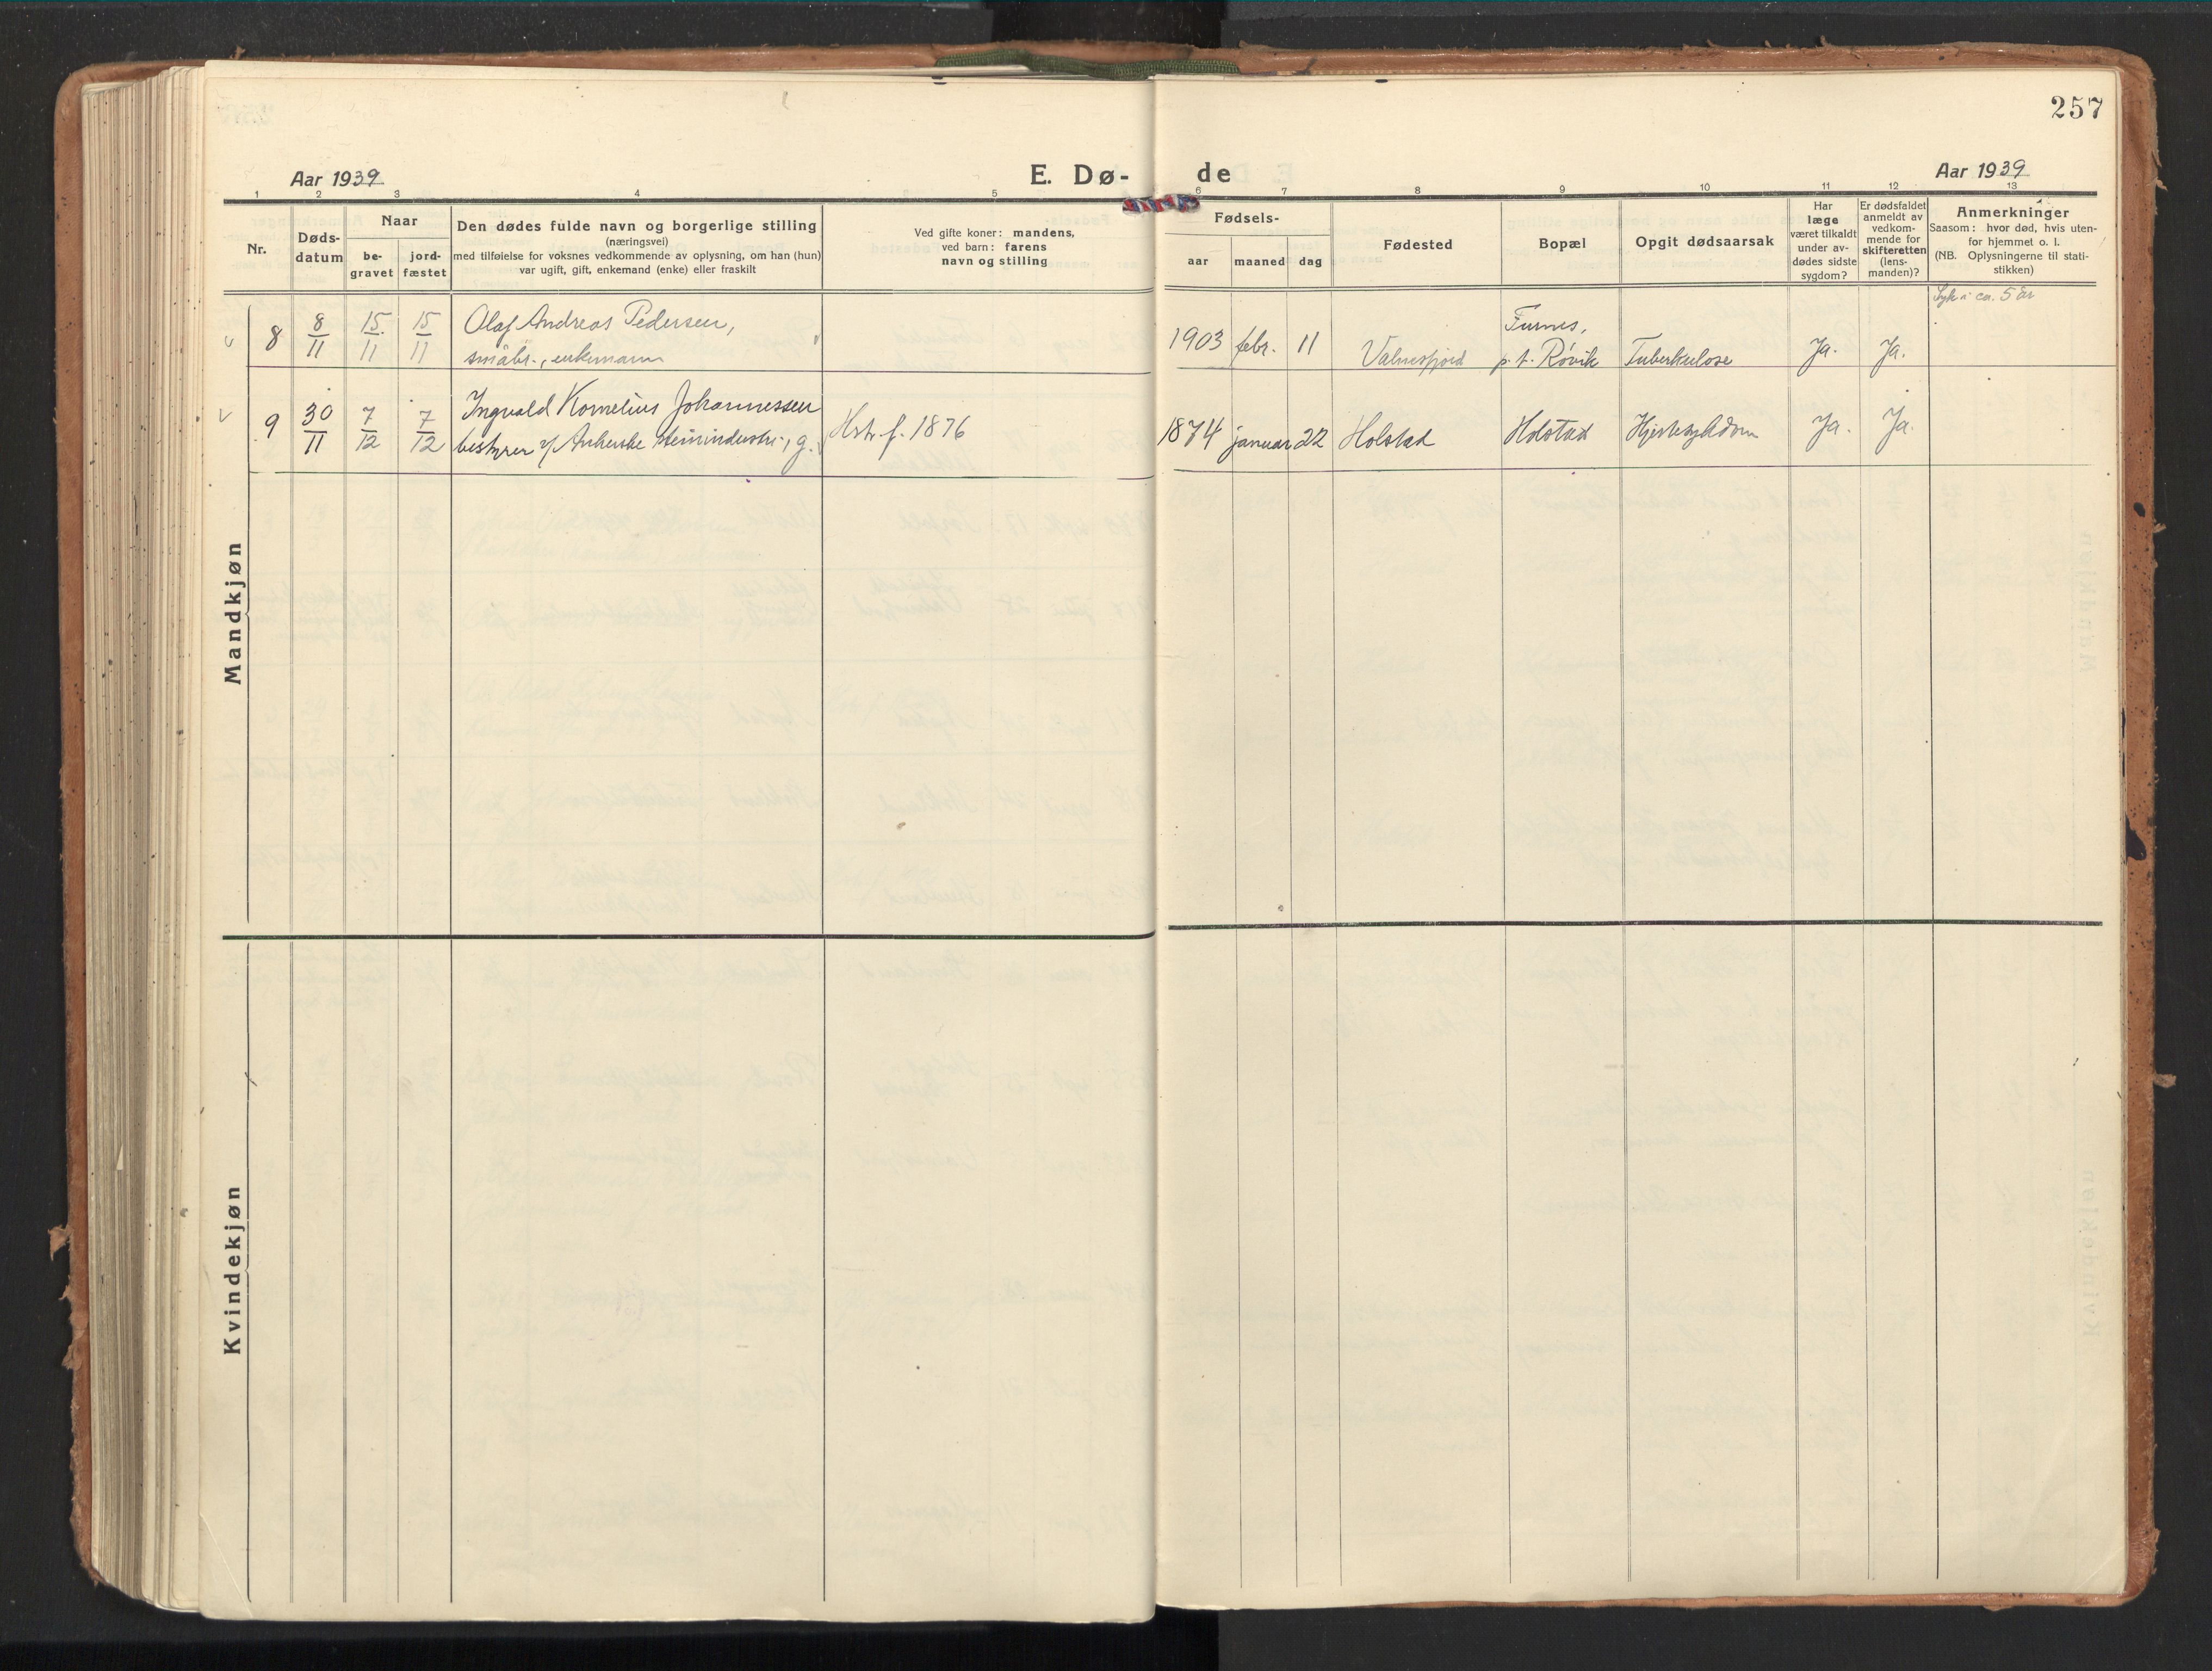 257
Aar 1939
E. Dø-
de
Aar 1939
1 2 3 4 5 6 7 8 9 10 11 12 13
Nr.
Døds-
datum
Naar
be-
gravet
jord-
fæstet
Den dødes fulde navn og borgerlige stilling
(næringsvei)
med tilføielse for voksnes vedkommende av oplysning, om han (hun)
var ugift, gift, enkemand (enke) eller fraskilt
Ved gifte koner: mandens,
ved barn: farens
navn og stilling
Fødsels-
aar
maaned
dag
Fødested
Bopæl
Opgit dødsaarsak
Har
læge
været tilkaldt
under av-
dødes sidste
sygdom?
Er dødsfaldet
anmeldt av
vedkom-
mende for
skifteretten
(lens-
manden)?
Anmerkninger
Saasom: hvor død, hvis uten-
for hjemmet o. l.
(NB. Oplysningerne til stati-
stikken)
Mandkjøn
8 8/11 15/11 15/11 Olaf Andreas Pedersen,
småbr., enkemann
1903 febr. 11 Valnesfjord
Furnes,
p. t. Røvik
Tuberkulose Ja. Ja.
Syk i ca. 5 år
9 30/11 7/12 7/12 Ingvald Kornelius Johannessen
bestyrer v/ Ankerske steinindustri, g.
Hstr. f. 1876
1874 januar 22 Holstad Holstad Hjertesykdom Ja. Ja.
Kvindekjøn